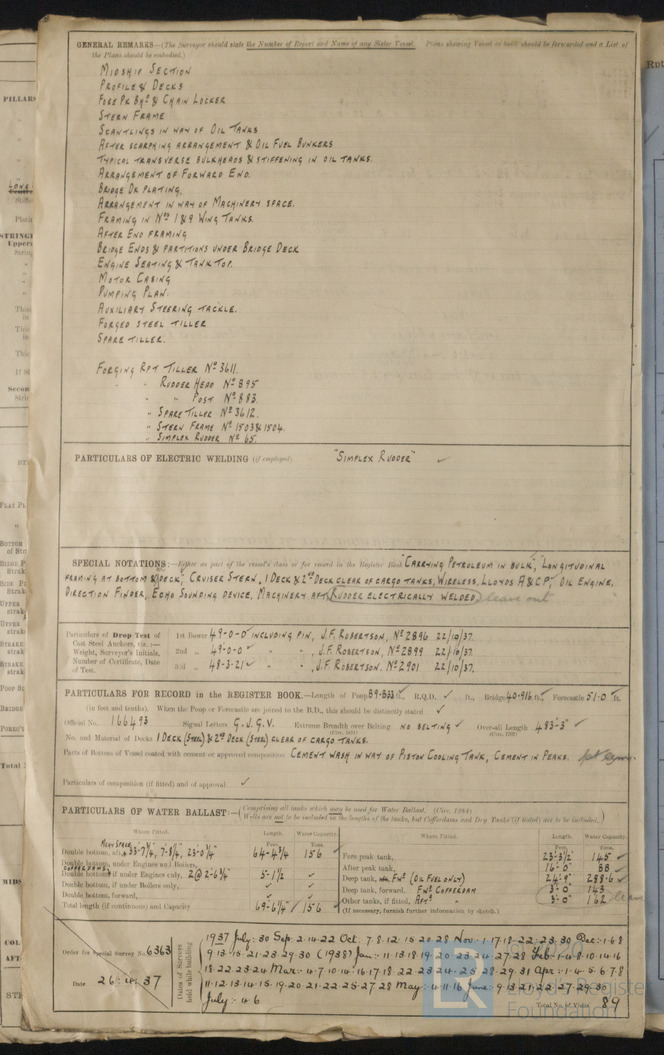 GENERAL REMARKS—(The Surveyor should state the Number of Report and Name of any Sister Vessel. Plans showing Vessel as built should be forwarded and a List of
the Plans should be embodied.)
MIDSHIP SECTION
PROFILE & DECKS
FORE PK BHD & CHAIN LOCKER
STERN FRAME
SCANTLINGS IN WAY OF OIL TANKS
AFTER SCARPHING ARRANGEMENT & OIL FUEL BUNKERS
TYPICAL TRANSVERSE BULKHEADS & STIFFENING IN OIL TANKS.
ARRANGEMENT OF FORWARD END.
BRIDGE DK PLATING.
ARRANGEMENT IN WAY OF MACHINERY SPACE.
FRAMING IN Nos 1 & 9 WING TANKS.
AFTER END FRAMING
BRIDGE ENDS & PARTITIONS UNDER BRIDGE DECK
ENGINE SEATING & TANK TOP.
MOTOR CASING
PUMPING PLAN.
AUXILIARY STEERING TACKLE.
FORGED STEEL TILLER
SPARE TILLER.
FORGING RPT TILLER No 3611.
" " RUDDER HEAD No 895
" " POST No 883
" SPARE TILLER No 3612.
" STERN FRAME No 1503 & 1504.
" SIMPLEX RUDDER No 65.
PARTICULARS OF ELECTRIC WELDING (if employed) "SIMPLEX RUDDER" ✓
SPECIAL NOTATIONS:—Either as part of the vessel's class or for record in the Register Book "CARRYING PETROLEUM IN BULK", "LONGITUDINAL
FRAMING AT BOTTOM & DECK", CRUISER STERN, 1 DECK & 2nd DECK CLEAR OF CARGO TANKS, WIRELESS, LLOYDS A & C P, OIL ENGINE,
DIRECTION FINDER, ECHO SOUNDING DEVICE, MACHINERY AFT, RUDDER ELECTRICALLY WELDED leave out
Particulars of Drop Test of
Cast Steel Anchors, viz.:—
Weight, Surveyor's Initials,
Number of Certificate, Date
of Test.
1st Bower 49-0-0 INCLUDING PIN, J.F. ROBERTSON, No 2896 22/10/37.
2nd " 49-0-0 " " , J.F. ROBERTSON, No 2899 22/10/37.
3rd " 48-3-21 " " , J.F. ROBERTSON. No 2901 22/10/37.
PARTICULARS FOR RECORD in the REGISTER BOOK.—Length of Poop 89·833 ft., R.Q.D. ✓ ft., Bridge 40·916 ft., Forecastle 51·0 ft.
(in feet and tenths). When the Poop or Forecastle are joined to the B.D., this should be distinctly stated ✓
Official No. 166493 Signal Letters G.J.G.V. Extreme Breadth over Belting NO BELTING ✓ Over-all Length 483-3" ✓
No. and Material of Decks 1 DECK (STEEL) & 2nd DECK (STEEL) CLEAR OF CARGO TANKS.
Parts of Bottom of Vessel coated with cement or approved composition CEMENT WASH IN WAY OF PISTON COOLING TANK, CEMENT IN PEAKS.
Particulars of composition (if fitted) and of approval ✓
PARTICULARS OF WATER BALLAST:—(Comprising all tanks which may be used for Water Ballast. (Circ. 1284)
Wells are not to be included in the lengths of the tanks, but Cofferdams and Dry Tanks (if tested) are to be included.)
Where Fitted. Length. Water Capacity. Where Fitted. Length. Water Capacity.
Feet. Tons. Feet. Tons.
Double bottom, aft, 33-7¼, 7-8¾, 23-0¾ 64-4¾ 156 ✓
Double bottom, under Engines and Boilers,
Double bottom, if under Engines only, 2@2-6¾ 5-1½ ✓
Double bottom, if under Boilers only, ✓ ✓
Double bottom, forward, ✓ ✓
Total length (if continuous) and Capacity 69-6¼ ✓ 156 ✓
Fore peak tank, 23-3½ 145 ✓
After peak tank, 16-0 88
Deep tank, FWD (OIL FUEL ONLY) 24-9 288·6 ✓
Deep tank, forward, FWD COFFERDAM 3-0 143
Other tanks, if fitted, AFT 3-0 162
(If necessary, furnish further information by sketch.)
Order for Special Survey No. 6363
Date 26·4·37
Dates of Surveys
held while building
1937 July:- 30 Sep. 2·14·22 Oct. 7·8·12·15·20·28 Nov:- 1·17·18·22·23·30 Dec:- 1·6·8
9·13·15·21·23·29·30 (1938) Jan:- 11·13·18·19·20·23·24·27·28 Feb:- 1·4·8·10·14·16
18·22·23·24 Mar:- 4·7·10·14·16·17·18·22·23·24·25·28·29·31 Apr:- 1·4·5·6·7·8
11·12·13·14·15·19·20·21·22·25·27·28 May:- 4·11·16 June:- 9·13·21·22·27·29·30
July:- 4·6
Total No. of Visits 89
Lloyd's Register
Foundation